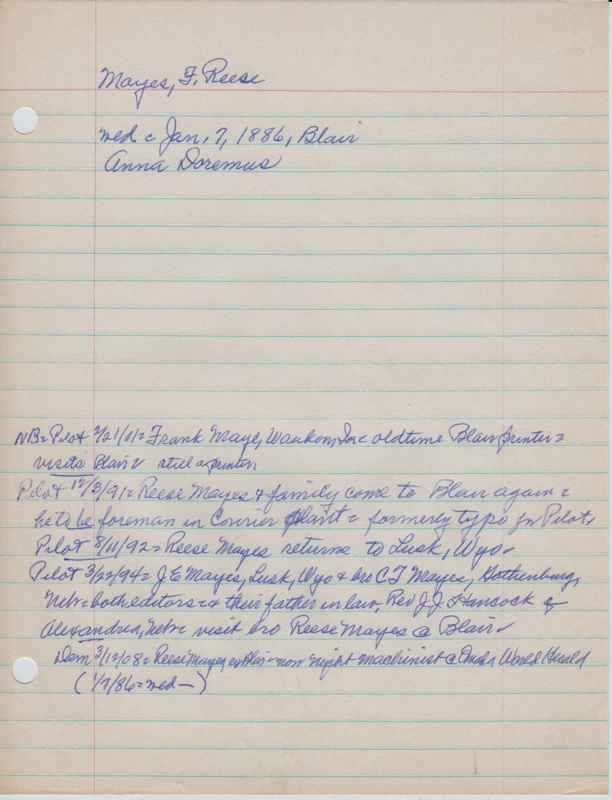 Mayes, F. Reese
wed c Jan. 7, 1886, Blair
Anna Doremus
NB = Pilot 2/21/01 = Frank Maye, Waukon, Ia = oldtime Blair printer =
visits Blair = still a printer
Pilot 12/3/91 = Reese Mayes & family come to Blair again =
he to be foreman in Courier plant = formerly typo for Pilot
Pilot 8/11/92 = Reese Mayes returns to Lusk, Wyo =
Pilot 3/22/94 = J E Mayes, Lusk, Wyo & bro C T Mayes, Gothenburg,
Neb = both editors = & their father in law, Rev J. J. Hancock of
Alexandria, Neb = visit bro Reese Mayes @ Blair =
Dem 3/12/08 = Reese Mayes, ex Blair = now night machinist @ Omaha World Herald
(1/7/86 = wed —)